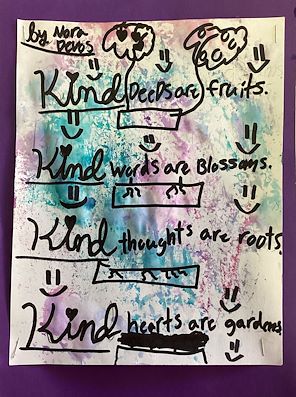 by Nora
Devos
Kind Deeds are fruits.
Kind words are Blossoms.
Kind thoughts are roots.
Kind hearts are gardens